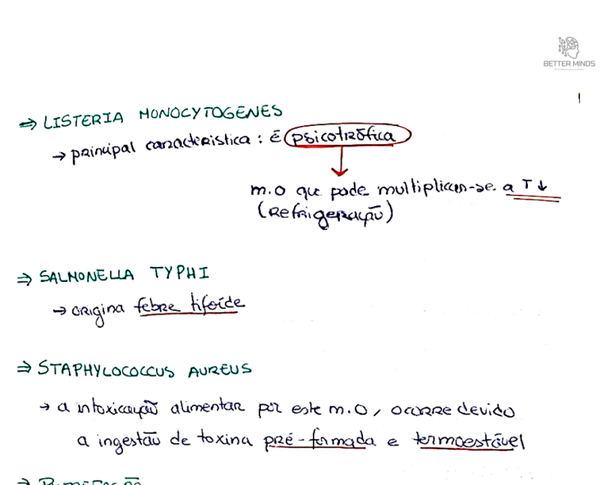 BETTER MINDS
⇒ LISTERIA MONOCYTOGENES
→ principal caracteristica : é psicotrófica
m.o que pode multiplicar-se a T ↓
(Refrigeração)
⇒ SALMONELLA TYPHI
→ origina febre tifoíde
⇒ STAPHYLOCOCCUS AUREUS
→ a intoxicação alimentar por este m.o, ocorre devido
a ingestão de toxina pré-formada e termoestável